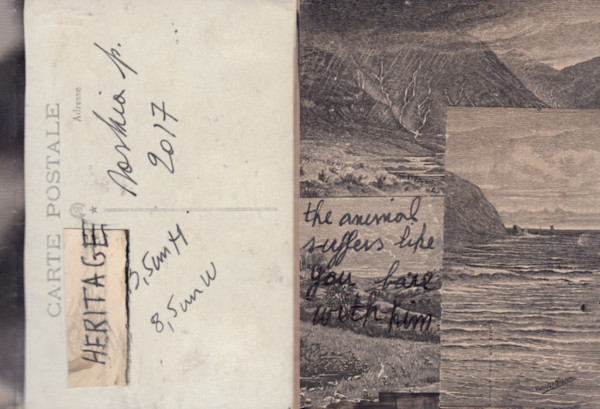 CARTE POSTALE
Adresse
noshia p.
2017
HERITAGE
8,5cm W
the animal
suffers like
you bare
with him